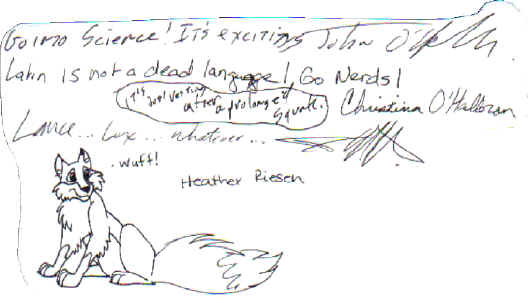 Go into Science! It's exciting John O'H
Latin is not a dead language!, Go Nerds!
It's just resting after a prolonged squawk.
Christina O'Halloran
Lance... Lux... whatever...
.wuff!
Heather Riesen